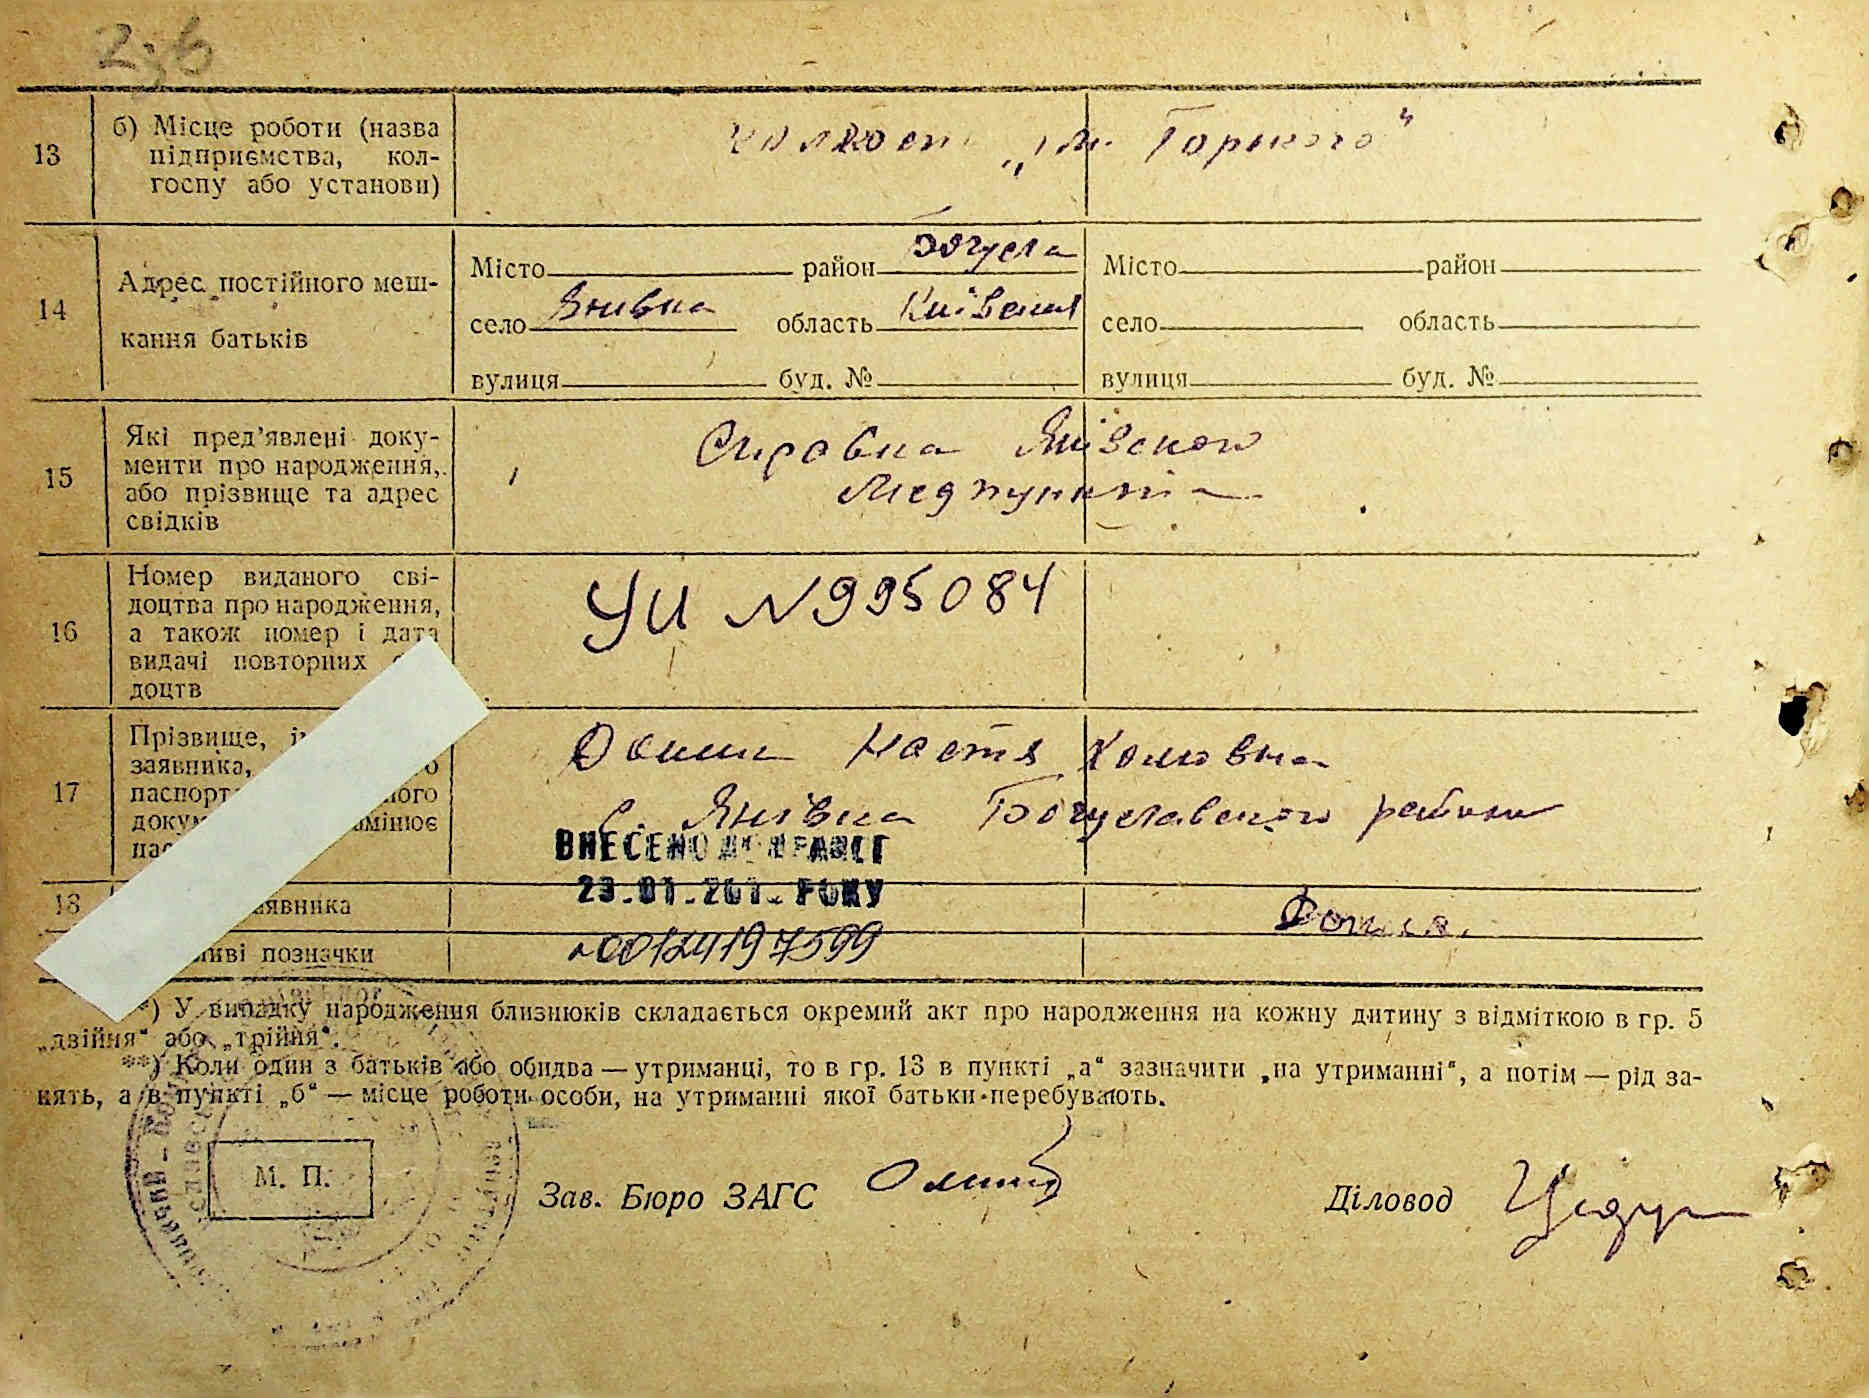 13
б) Місце роботи (назва
підприємства, кол-
госпу або установи)
колхоз „ім. Горького“
14
Адрес постійного меш-
кання батьків
Місто район Богусла
село Янивка область Київская
вулиця буд. №
Місто район
село область
вулиця буд. №
15
Які пред'явлені доку-
менти про народження,
або прізвище та адрес
свідків
Справка
Медпункта
16
Номер виданого сві-
доцтва про народження,
а також номер і дата
видачі повторних
доцтв
УИ N 995084
17
Прізвище,
заявника,
паспорт
Настя
с. Янівка Богуславского района
ВНЕСЕНО ДО ДРАЦСГ
18
заявника
позначки
00124197599
*) У випадку народження близнюків складається окремий акт про народження на кожну дитину з відміткою в гр. 5
„двійня“ або „трійня“.
**) Коли один з батьків або обидва — утриманці, то в гр. 13 в пункті „а“ зазначити „на утриманні“, а потім — рід за-
нять, а в пункті „б“ — місце роботи особи, на утриманні якої батьки перебувають.
М. П.
Зав. Бюро ЗАГС
Діловод